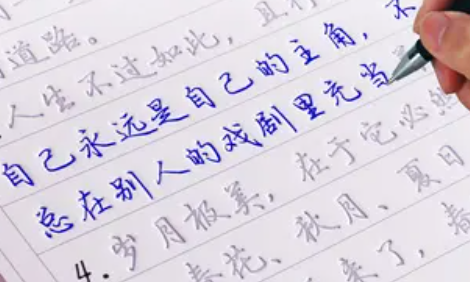 道路。
人生不过如此，且行
自己永远是自己的主角，不
总在别人的戏剧里充当着
4.岁月极美，在于它必然
春花、秋月、夏日
来了，春